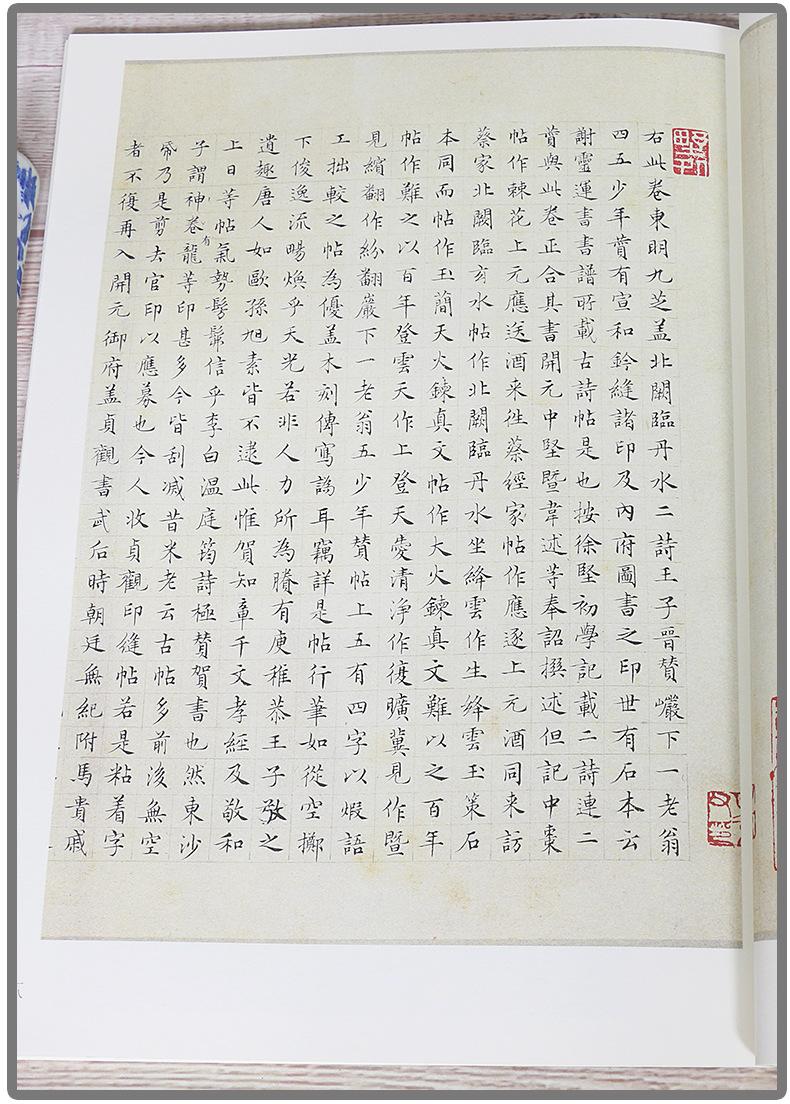 右此卷東明九芝盖北闕臨丹水二詩王子晉賛巗下一老翁
四五少年賛有宣和鈐縫諸印及內府圖書之印世有石本云
謝靈運書書譜所載古詩帖是也按徐堅初學記載二詩連二
賛與此卷正合其書開元中堅暨韋述等奉詔撰述但記中棗
帖作棘花上元應送酒来徃蔡經家帖作應逐上元酒同来訪
蔡家北闕臨亥水帖作北闕臨丹水坐絳雲作生絳雲玉策石
本同而帖作玉簡天火鍊真文帖作大火鍊真文難以之百年
帖作難之以百年登雲天作上登天愛清浄作復曠冀見作暨
見繽翻作紛翻巖下一老翁五少年賛帖上五有四字以煆語
工拙較之帖為優盖木刻傳寫譌耳竊詳是帖行筆如從空擲
下俊逸流暢煥乎天光若非人力所為勝有庾稚恭王子敬之
遺趣唐人如歐孫旭素皆不逮此惟賀知章千文孝經及敬和
上日等帖氣勢髣髴信乎李白温庭筠詩極賛賀書也然東沙
子謂神卷有龍等印甚多今皆刮滅昔米老云古帖多前後無空
帋乃是剪去官印以應募也今人收貞觀印縫帖若是粘着字
者不復再入開元御府盖貞觀書武后時朝廷無紀附馬貴戚